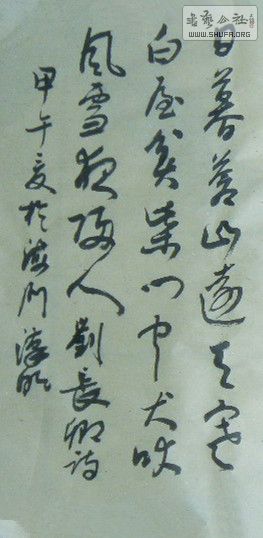 書藝公社
WWW.SHUFA.ORG
日暮蒼山遠天寒
白屋貧柴門聞犬吠
風雪夜歸人劉長卿詩
甲午夏於海門